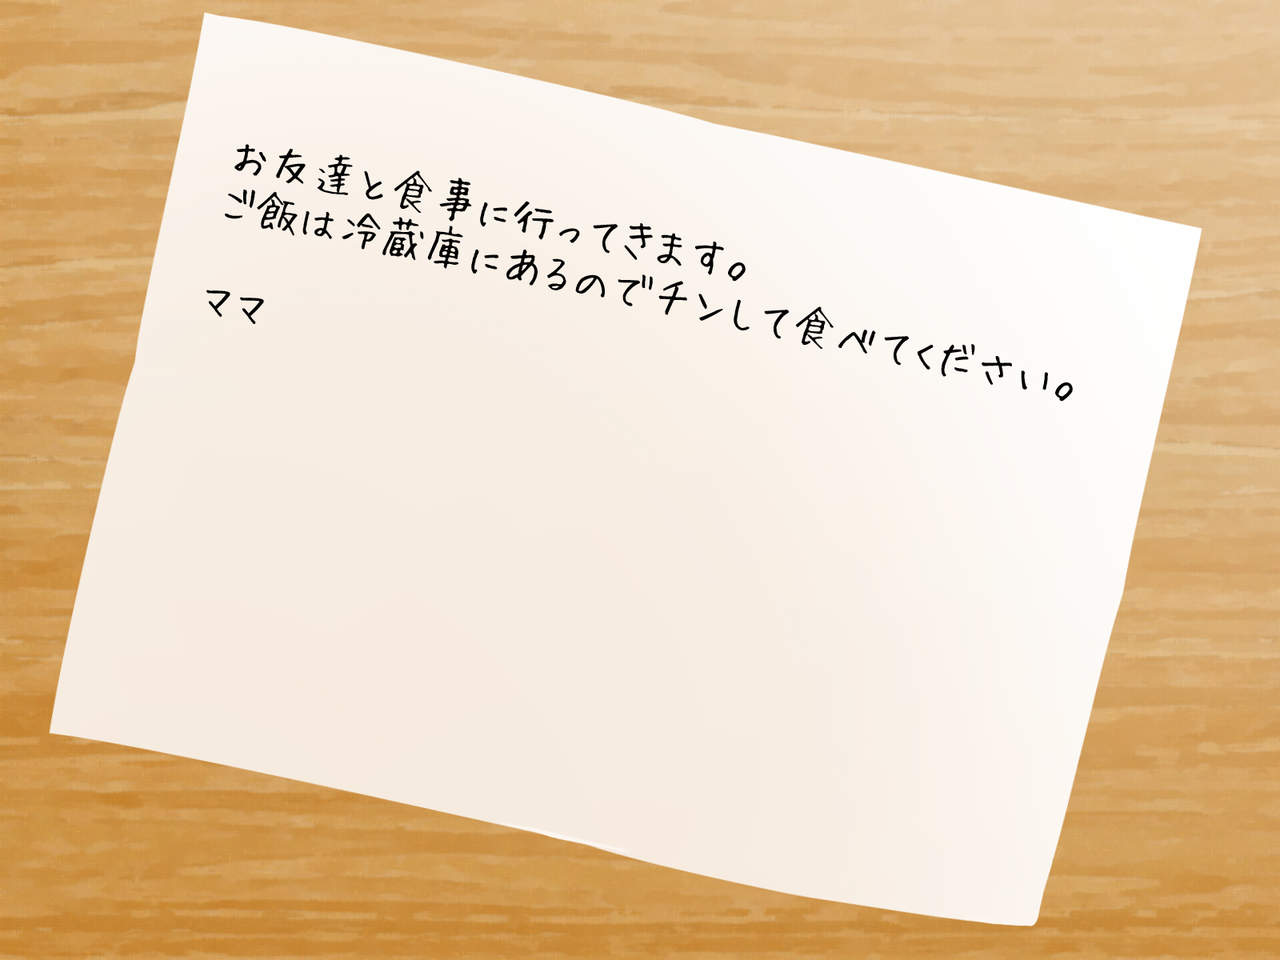 お友達と食事に行ってきます。
ご飯は冷蔵庫にあるのでチンして食べてください。
ママ